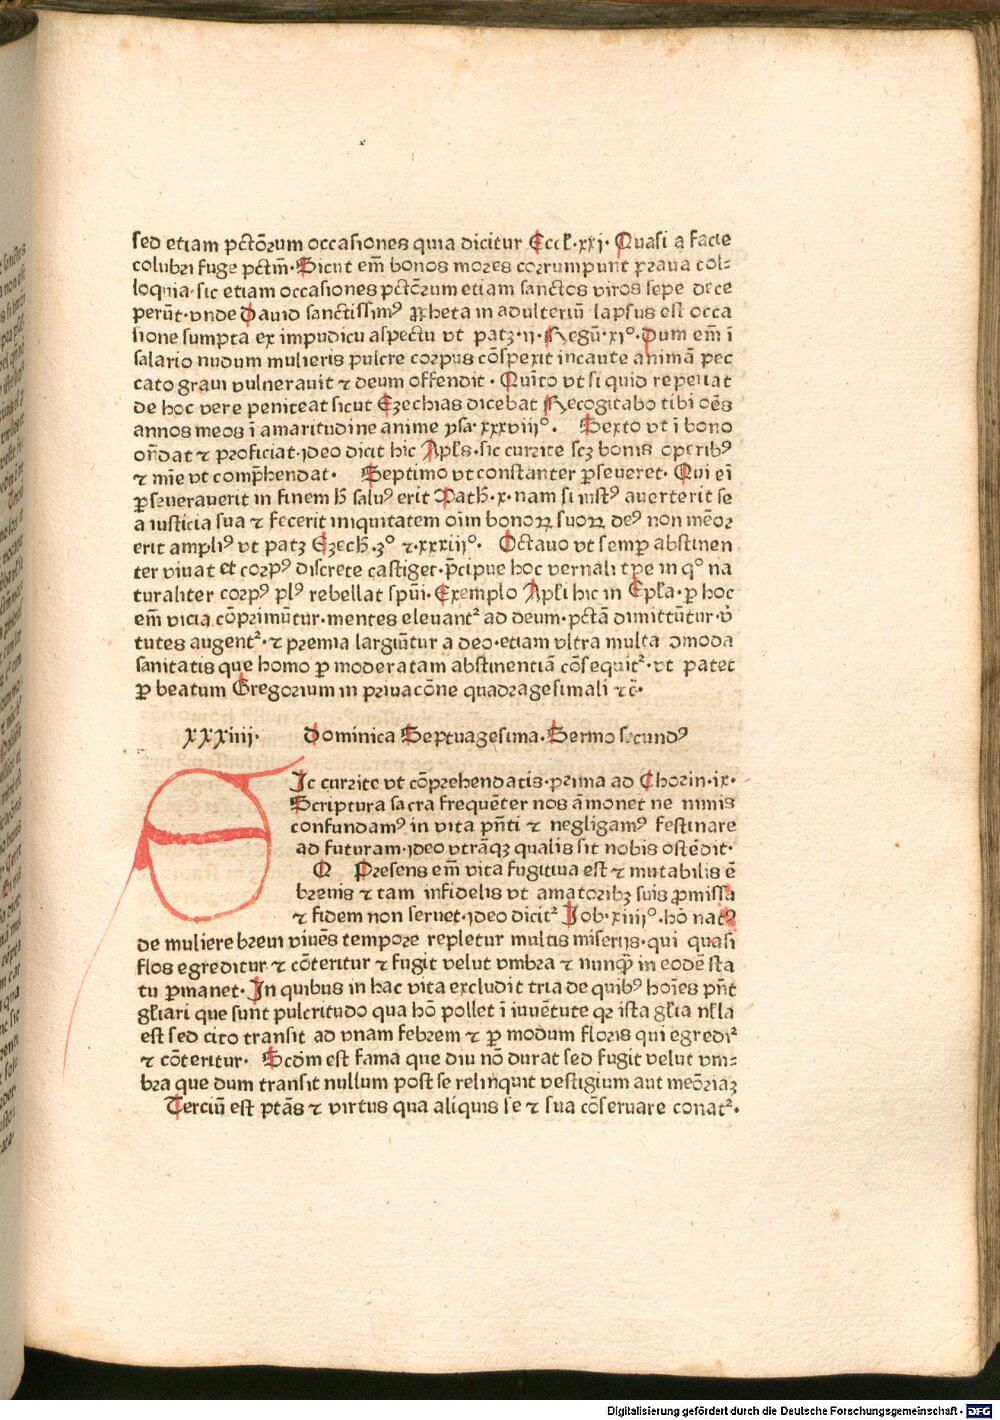 sed etiam pctōrum occasiones quia dicitur Eccł·xxi· Quasi a facie
colubri fuge pctm̄· Sicut em̄ bonos mores corrumpunt praua col⸗
loquia·sic etiam occasiones pctōrum etiam sanctos viros sepe dece
perūt·vnde Dauid sanctissimꝰ ꝓheta in adulteriū lapsus est occa
sione sumpta ex impudicu aspectu vt patꝫ·ij·Regū·xiº·Dum em̄ ī
salario nudum mulieris pulcre corpus cōspexit incaute animā pec
cato graui vulnerauit ⁊ deum offendit· Quīto vt si quid repeuat
de hoc vere peniteat sicut Ezechias dicebat Recogitabo tibi oēs
annos meos ī amaritudine anime ysa·xxxviijº· Sexto vt ī bono
on̄dat ⁊ proficiat·ideo dicit hic Apl̄s·sic currite scꝫ bonis operibꝰ
⁊ mīe vt comp̄hendat· Septimo vt constanter ꝑseueret· Qui eī
ꝑseuerauerit in finem ħ saluꝰ erit Math̄·x·nam si iustꝰ auerterit se
a iusticia sua ⁊ fecerit iniquitatem oīm bonoꝝ suoꝝ deꝰ non mēor
erit ampliꝰ vt patꝫ Ezech̄·3º ⁊·xxxiijº· Octauo vt semꝑ abstinen
ter viuat et corpꝰ discrete castiget·p̄cipue hoc vernali tꝑe in qº na
turaliter corpꝰ plꝰ rebellat spūi·Exemplo Apl̄i hic in Epl̄a·ꝑ hoc
em̄ vicia cōprimūtur·mentes eleuantᷣ ad deum·pctā dimittūtur·v̄
tutes augentᷣ·⁊ premia largiūtur a deo·etiam vltra multa ɔmoda
sanitatis que homo ꝑ moderatam abstinentiā cōsequitᷣ·vt patet
ꝑ beatum Gregorium in priuacōne quadragesimali ⁊c̄·
xxxiiij· Dominica Septuagesima·Sermo secundꝰ
SIc currite vt cōprehendatis·prima ad Chorin·ix·
Scriptura sacra frequēter nos āmonet ne nimis
confundamꝰ in vita pn̄ti ⁊ negligamꝰ festinare
ad futuram·ideo vtrāqꝫ qualis sit nobis ostēdit·
Q Presens em̄ vita fugitiua est ⁊ mutabilis ē
breuis ⁊ tam infidelis vt amatoribꝫ suis ꝓmissa
⁊ fidem non seruet·ideo dicitᷣ Job·xiiijº·hō natꝰ
de muliere breui viuēs tempore repletur multis miserijs·qui quasi
flos egreditur ⁊ cōteritur ⁊ fugit velut vmbra ⁊ nunqͣ̄ in eodē sta
tu ꝑmanet· In quibus in hac vita excludit tria de quibꝰ hoīes pn̄t
gl̄iari que sunt pulcritudo qua hō pollet ī iuuētute qr ista gl̄ia nl̄la
est sed cito transit ad vnam febrem ⁊ ꝑ modum floris qui egrediᷣ
⁊ cōteritur· Scdm est fama que diu nō durat sed fugit velut vm⸗
bra que dum transit nullum post se relinquit vestigium aut meōriaꝫ
Terciū est ptās ⁊ virtus qua aliquis se ⁊ sua cōseruare conatᷣ·
Digitalisierung gefördert durch die Deutsche Forschungsgemeinschaft - DFG